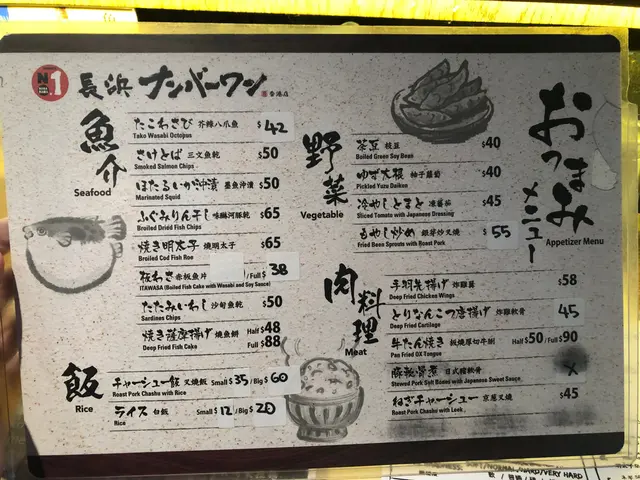 N
1
長浜 ナンバーワン
香港店
魚介
Seafood
たこわさび 芥辣八爪魚 $42
Tako Wasabi Octopus
さけとば 三文魚乾 $50
Smoked Salmon Chips
ほたるいか沖漬 墨魚沖漬 $50
Marinated Squid
ふぐみりん干し 味醂河豚乾 $65
Broiled Dried Fish Chips
焼き明太子 燒明太子 $65
Broiled Cod Fish Roe
板わさ 赤板魚片 /Full $38
ITAWASA (Boiled Fish Cake with Wasabi and Soy Sauce)
たたみいわし 沙甸魚乾 $50
Sardines Chips
焼き薩摩揚げ 燒魚餅 Half $48
Deep Fried Fish Cake Full $88
飯
Rice
チャーシュー飯 叉燒飯 Small $35 /Big $60
Roast Pork Chashu with Rice
ライス 白飯 Small $12 /Big $20
Rice
野菜
Vegetable
茶豆 枝豆 $40
Boiled Green Soy Bean
ゆず大根 柚子蘿蔔 $40
Pickled Yuzu Daikon
冷やしとまと 凍蕃茄 $45
Sliced Tomato with Japanese Dressing
もやし炒め 銀芽炒叉燒 $55
Fried Bean Sprouts with Roast Pork
肉料理
Meat
手羽先揚げ 炸雞翼 $58
Deep Fried Chicken Wings
とりなんこつ唐揚げ 炸雞軟骨 45
Deep Fried Cartilage
牛たん焼き 板燒厚切牛脷 Half $50 /Full $90
Pan Fried OX Tongue
豚軟骨煮 日式豬軟骨 X
Stewed Pork Soft Bones with Japanese Sweet Sauce
ねぎチャーシュー 京葱叉燒 $45
Roast Pork Chashu with Leek
おつまみ
メニュー
Appetizer Menu
SOFT/NORMAL/HARD/VERY HARD